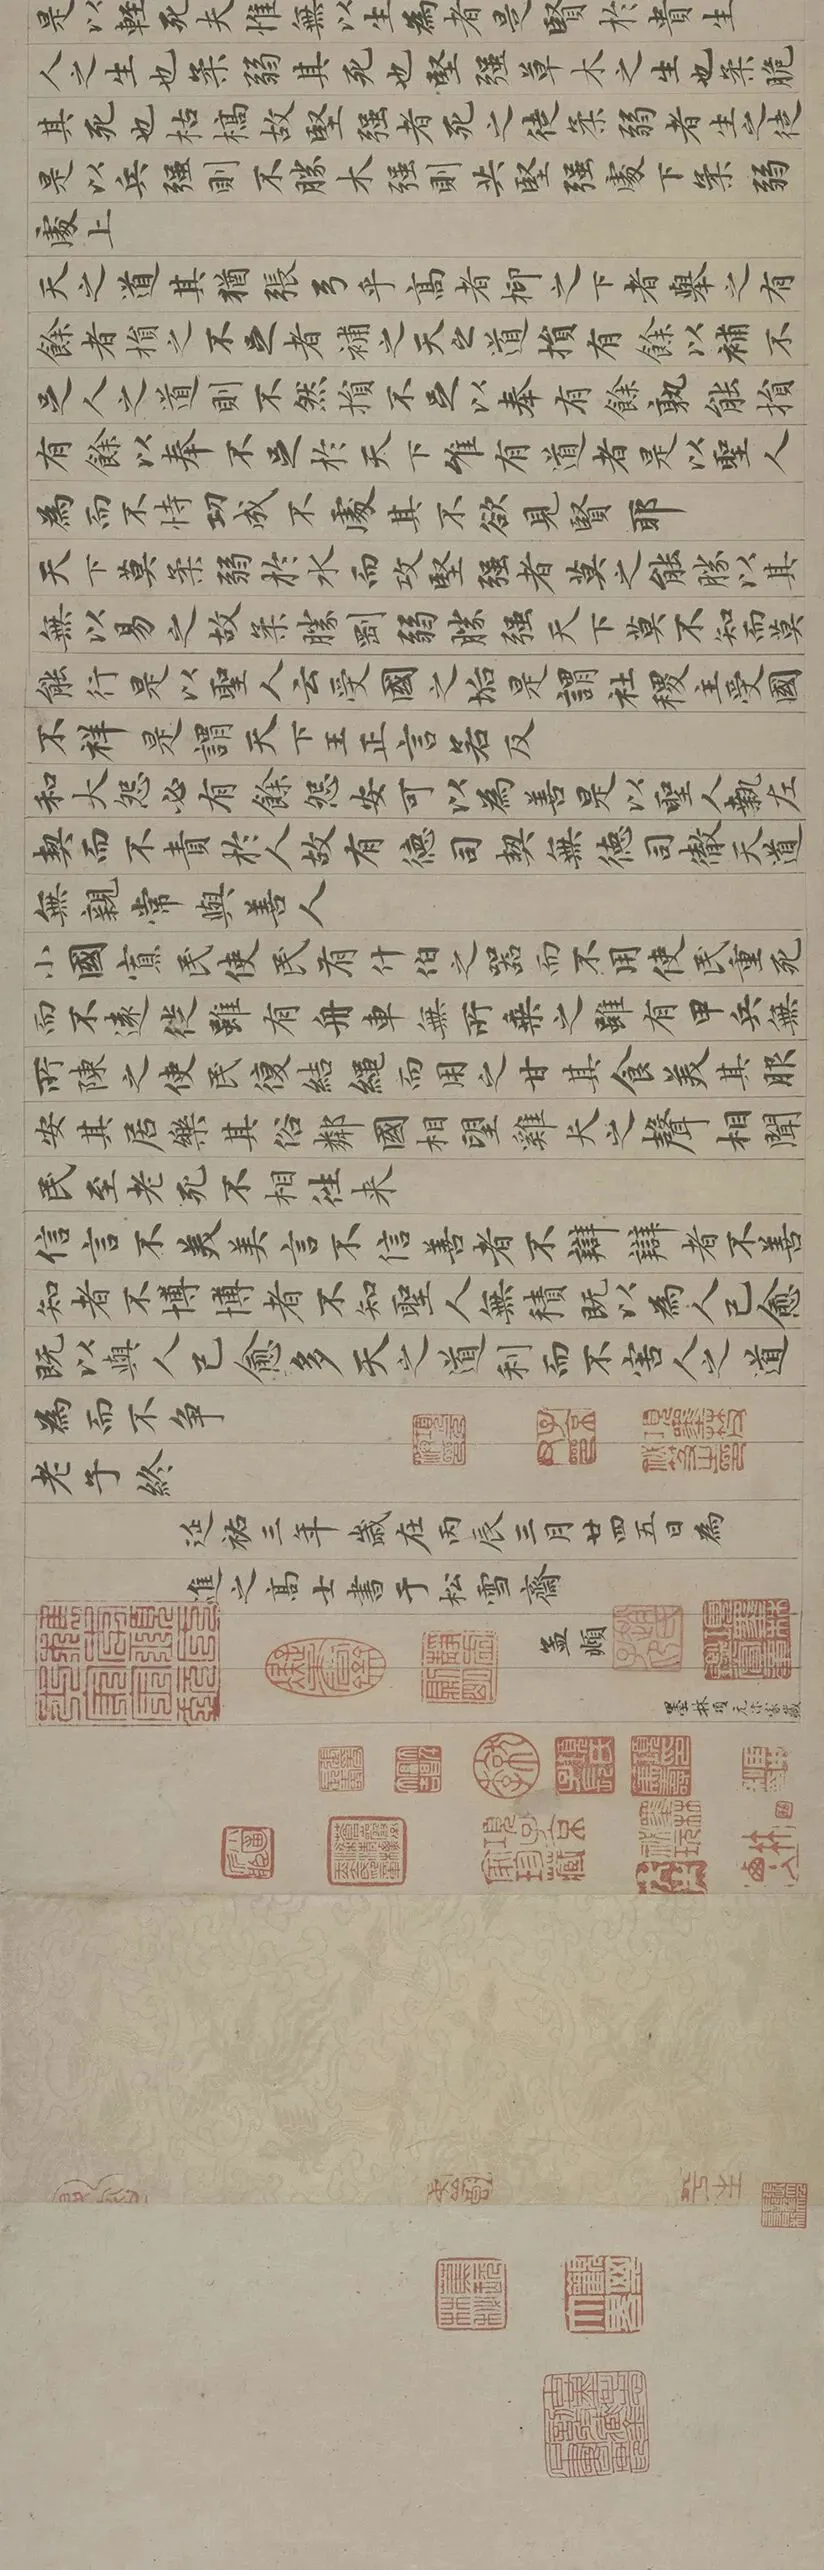 是以輕死夫惟無以生為者是賢於貴生
人之生也柔弱其死也堅强草木之生也柔脆
其死也枯槁故堅强者死之徒柔弱者生之徒
是以兵强則不勝木强則共堅强處下柔弱
處上
天之道其猶張弓乎高者抑之下者舉之有
餘者損之不足者補之天之道損有餘以補不
足人之道則不然損不足以奉有餘孰能損
有餘以奉不足於天下唯有道者是以聖人
為而不恃功成不處其不欲見賢耶
天下莫柔弱於水而攻堅强者莫之能勝以其
無以易之故柔勝剛弱勝强天下莫不知而莫
能行是以聖人云受國之垢是謂社稷主受國
不祥是謂天下王正言若反
和大怨必有餘怨安可以為善是以聖人執左
契而不責於人故有德司契無德司徹天道
無親常與善人
小國寡民使民有什伯之器而不用使民重死
而不遠徙雖有舟車無所乗之雖有甲兵無
所陳之使民復結繩而用之甘其食美其服
安其居樂其俗鄰國相望雞犬之聲相聞
民至老死不相往来
信言不美美言不信善者不辯辯者不善
知者不博博者不知聖人無積既以為人己愈
既以與人己愈多天之道利而不害人之道
為而不争
老子終
延祐三年歲在丙辰三月廿四五日為
進之高士書于松雪齋
孟頫
墨林項元汴家藏